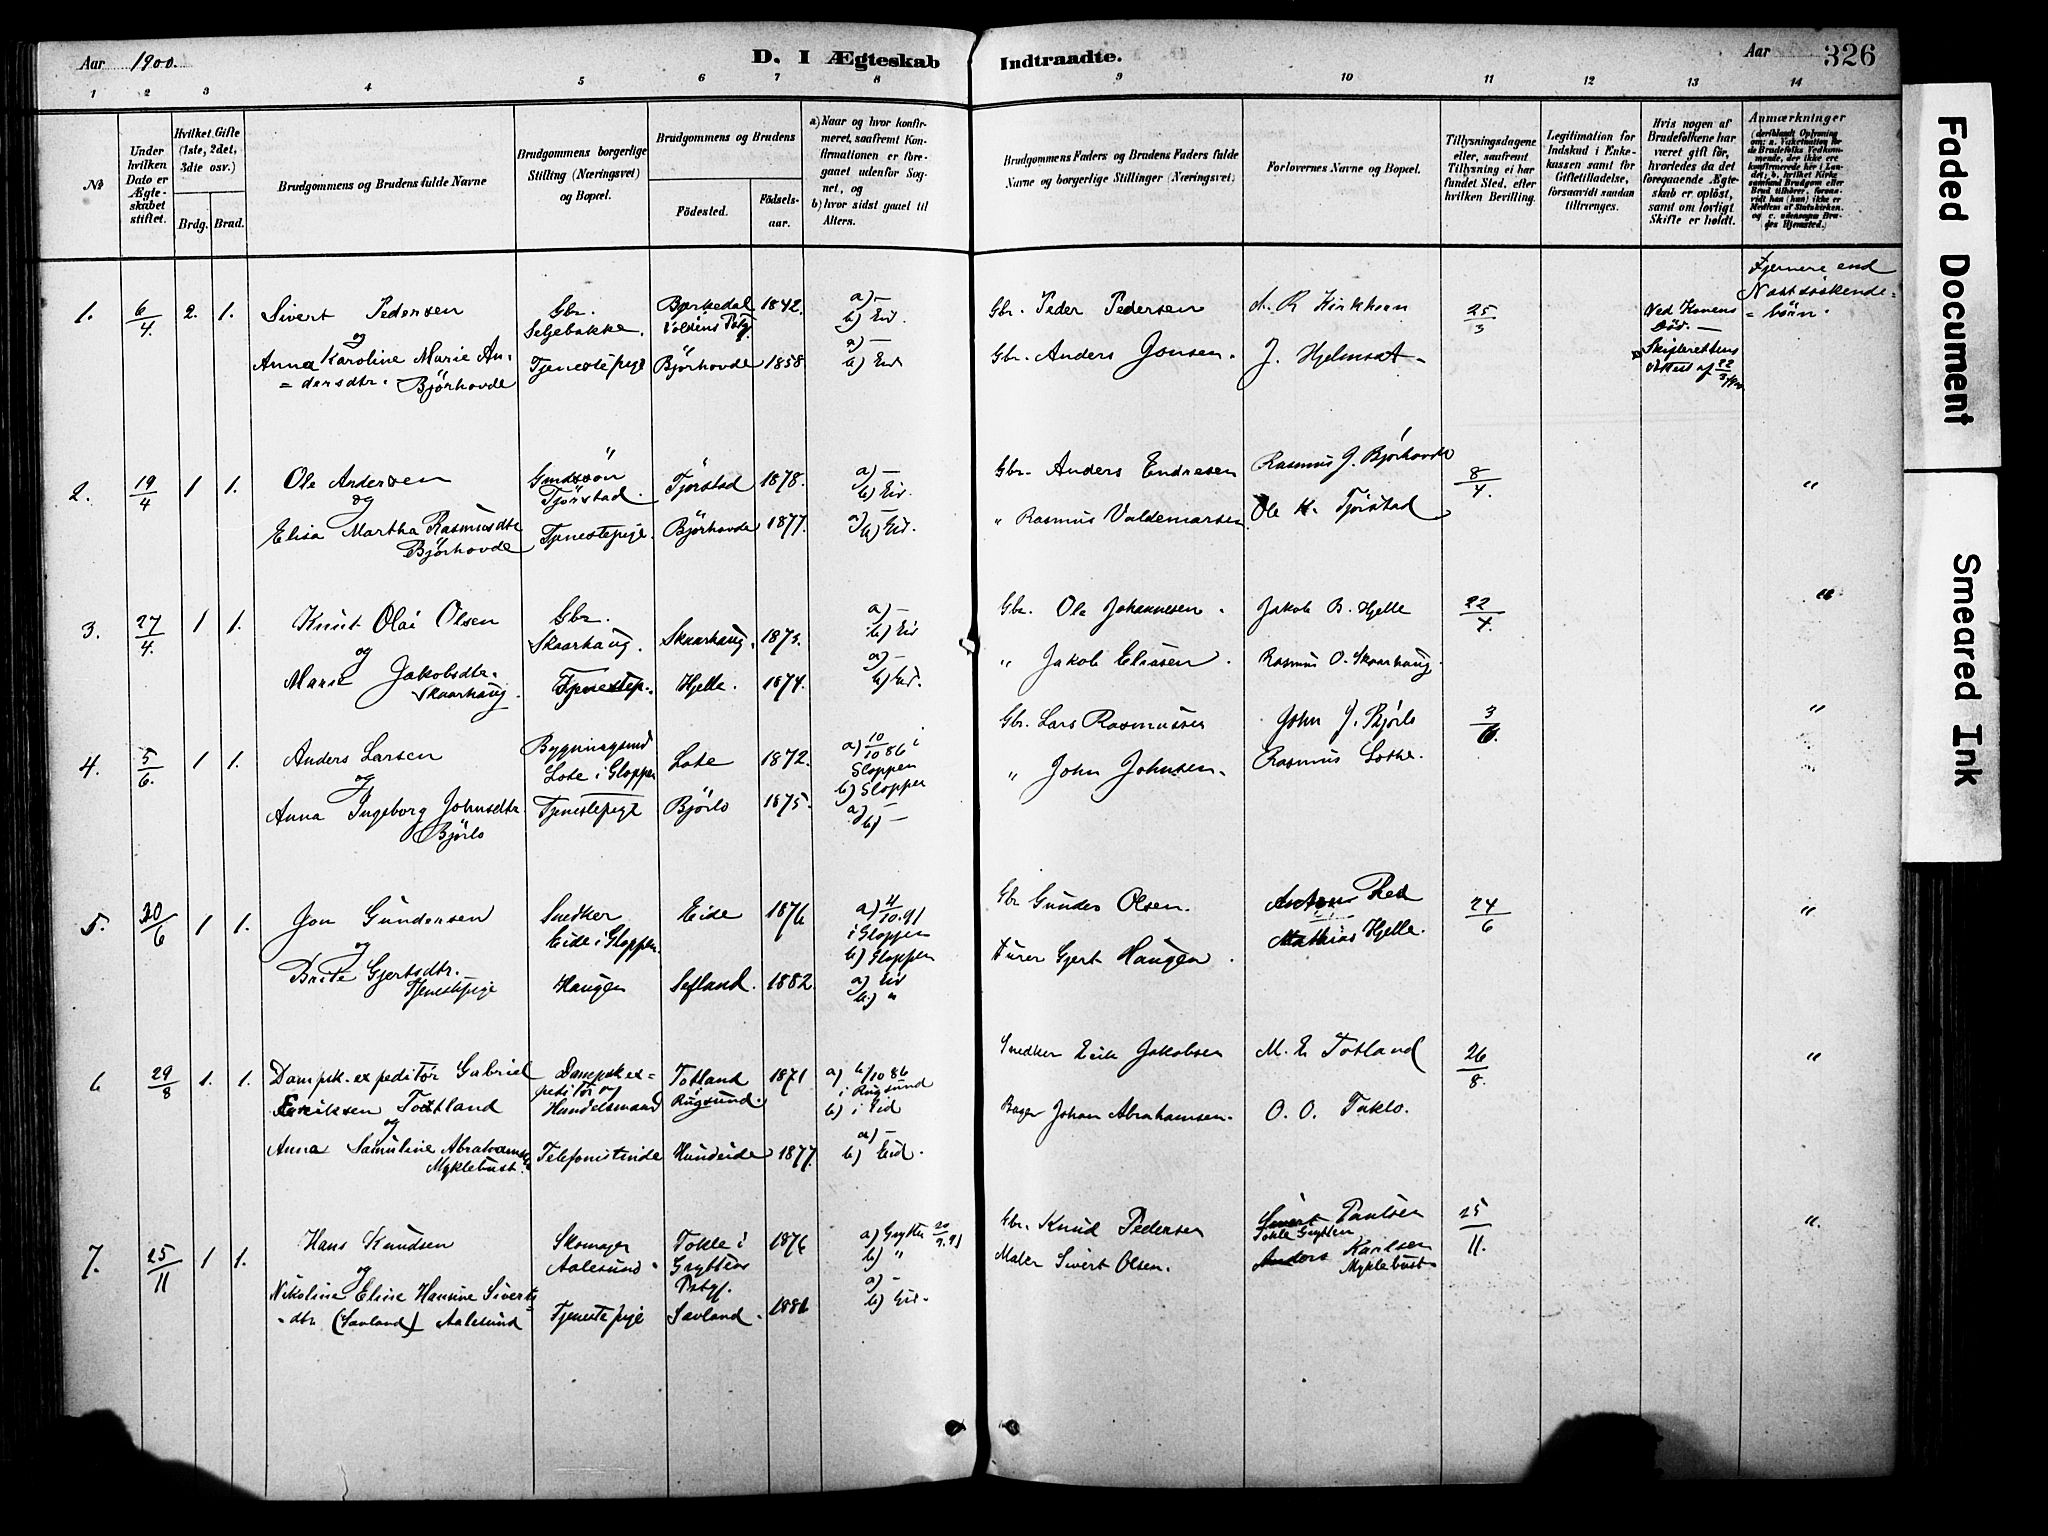 Aar 1900.
D. I Ægteskab Indtraadte.
Aar
326
1 2 3 4 5 6 7 8 9 10 11 12 13 14
№
Under hvilken Dato er Ægteskabet stiftet.
Hvilket Gifte (1ste, 2det, 3die osv.)
Brdg. Brud.
Brudgommens og Brudens fulde Navne
Brudgommens borgerlige Stilling (Næringsvei) og Bopæl.
Brudgommens og Brudens
Födested.
Födselsaar.
a) Naar og hvor konfirmeret, saafremt Konfirmationen er foregaaet udenfor Sognet, og
b) hvor sidst gaaet til Alters.
Brudgommens Faders og Brudens Faders fulde Navne og borgerlige Stillinger (Næringsvei)
Forlovernes Navne og Bopæl.
Tillysningsdagene eller, saafremt Tillysning ei har fundet Sted, efter hvilken Bevilling.
Legitimation for Indskud i Enkekassen samt for Giftetilladelse, forsaavidt saadan tiltrænges.
Hvis nogen af Brudefolkene har været gift för, hvorledes da det foregaaende Ægteskab er oplöst, samt om lovligt Skifte er holdt.
Anmærkninger
1. 6/4. 2. 1. Sivert Pedersen Gbr. Seljebakke. Bjørkedal 1842. a) - b) Eid. Gbr. Peder Pedersen A. R. Kirkhorn 25/3 Ved Konens Död. - Skifterettens Attest af 22/3 Fjernere end Næstsøskendebörn.
og
Anna Karoline Marie Andersdtr. Björhovde Tjenestepige Björhovde 1858 a) - b) Eid Gbr. Anders Jonsen. J. Hjelmset
2. 19/4 1 1. Ole Andersen Gmdssön Tjörstad. Tjörstad 1878. a) - b) Eid. Gbr. Anders Endresen Rasmus J. Björhovde 8/4. "
og
Elisa Martha Rasmusdtr Björhovde Tjenestepige. Björhovde 1877. a) - b) Eid. " Rasmus Valdemarsen Ole K. Tjörstad
3. 27/4. 1 1. Knut Olai Olsen Gbr. Skaarhaug. Skaarhaug. 1873. a) - b) Eid Gbr. Ole Johannesen. Jakob B. Hjelle 22/4. "
og
Marie Jakobsdtr. Skaarhaug. Tjenestep. Hjelle. 1874. a) - b) Eid. " Jakob Eliasen. Rasmus O. Skaarhaug.
4. 5/6. 1 1. Anders Larsen Bygningssnd Lote i Gloppen Lote 1872. a) 10/10 86 i Gloppen b) Gloppen Gbr. Lars Rasmussen John J. Bjørlo 3/6. "
og
Anna Ingeborg Johnsdtr. Bjørlo Tjenestepige Bjørlo 1875. a) b) - " John Johnsen. Rasmus Lothe.
5. 20/6 1 1. Jon Gundersen Snedker Eide i Gloppen. Eide 1876 a) 4/10.91 i Gloppen b) Gloppen Gbr Gunder Olsen. Mathias Hjelle. 24/6 "
og
Brite Gjertsdtr. Tjenestepige Haugen Sefland. 1882 a) Eid b) " Gjert Haugen.
6 29/8 1. 1. Dampsk.expeditör Gabriel Eriksen Totland Dampskexpeditör og Handelsmand Totland Rugsund. 1871 a) 6/10 86 i Rugsund b) i Eid Snedker Erik Jakobsen M. E. Totland 26/8. "
og
Anna Samuline Abrahamsen Myklebust Telefonistinde Hundeide 1877. a) - b) Eid. Bager Johan Abrahamsen. O. O. Taklo.
7. 25/11 1 1. Hans Knudsen Skomager Aalesund. Tokle i Grytten Pstgj. 1876 a) Grytten 20/9.91 b) " Gbr. Knud Pedersen Sivert Paulsen Tokle Grytten 25/11. "
og
Nikoline Eline Hansine Sivertsdtr (Savland) Aalesund Tjenestepige Savland. 1881 a) - b) Eid. Maler Sivert Olsen. Anders Karlsen Myklebust
Faded Document
Smeared Ink